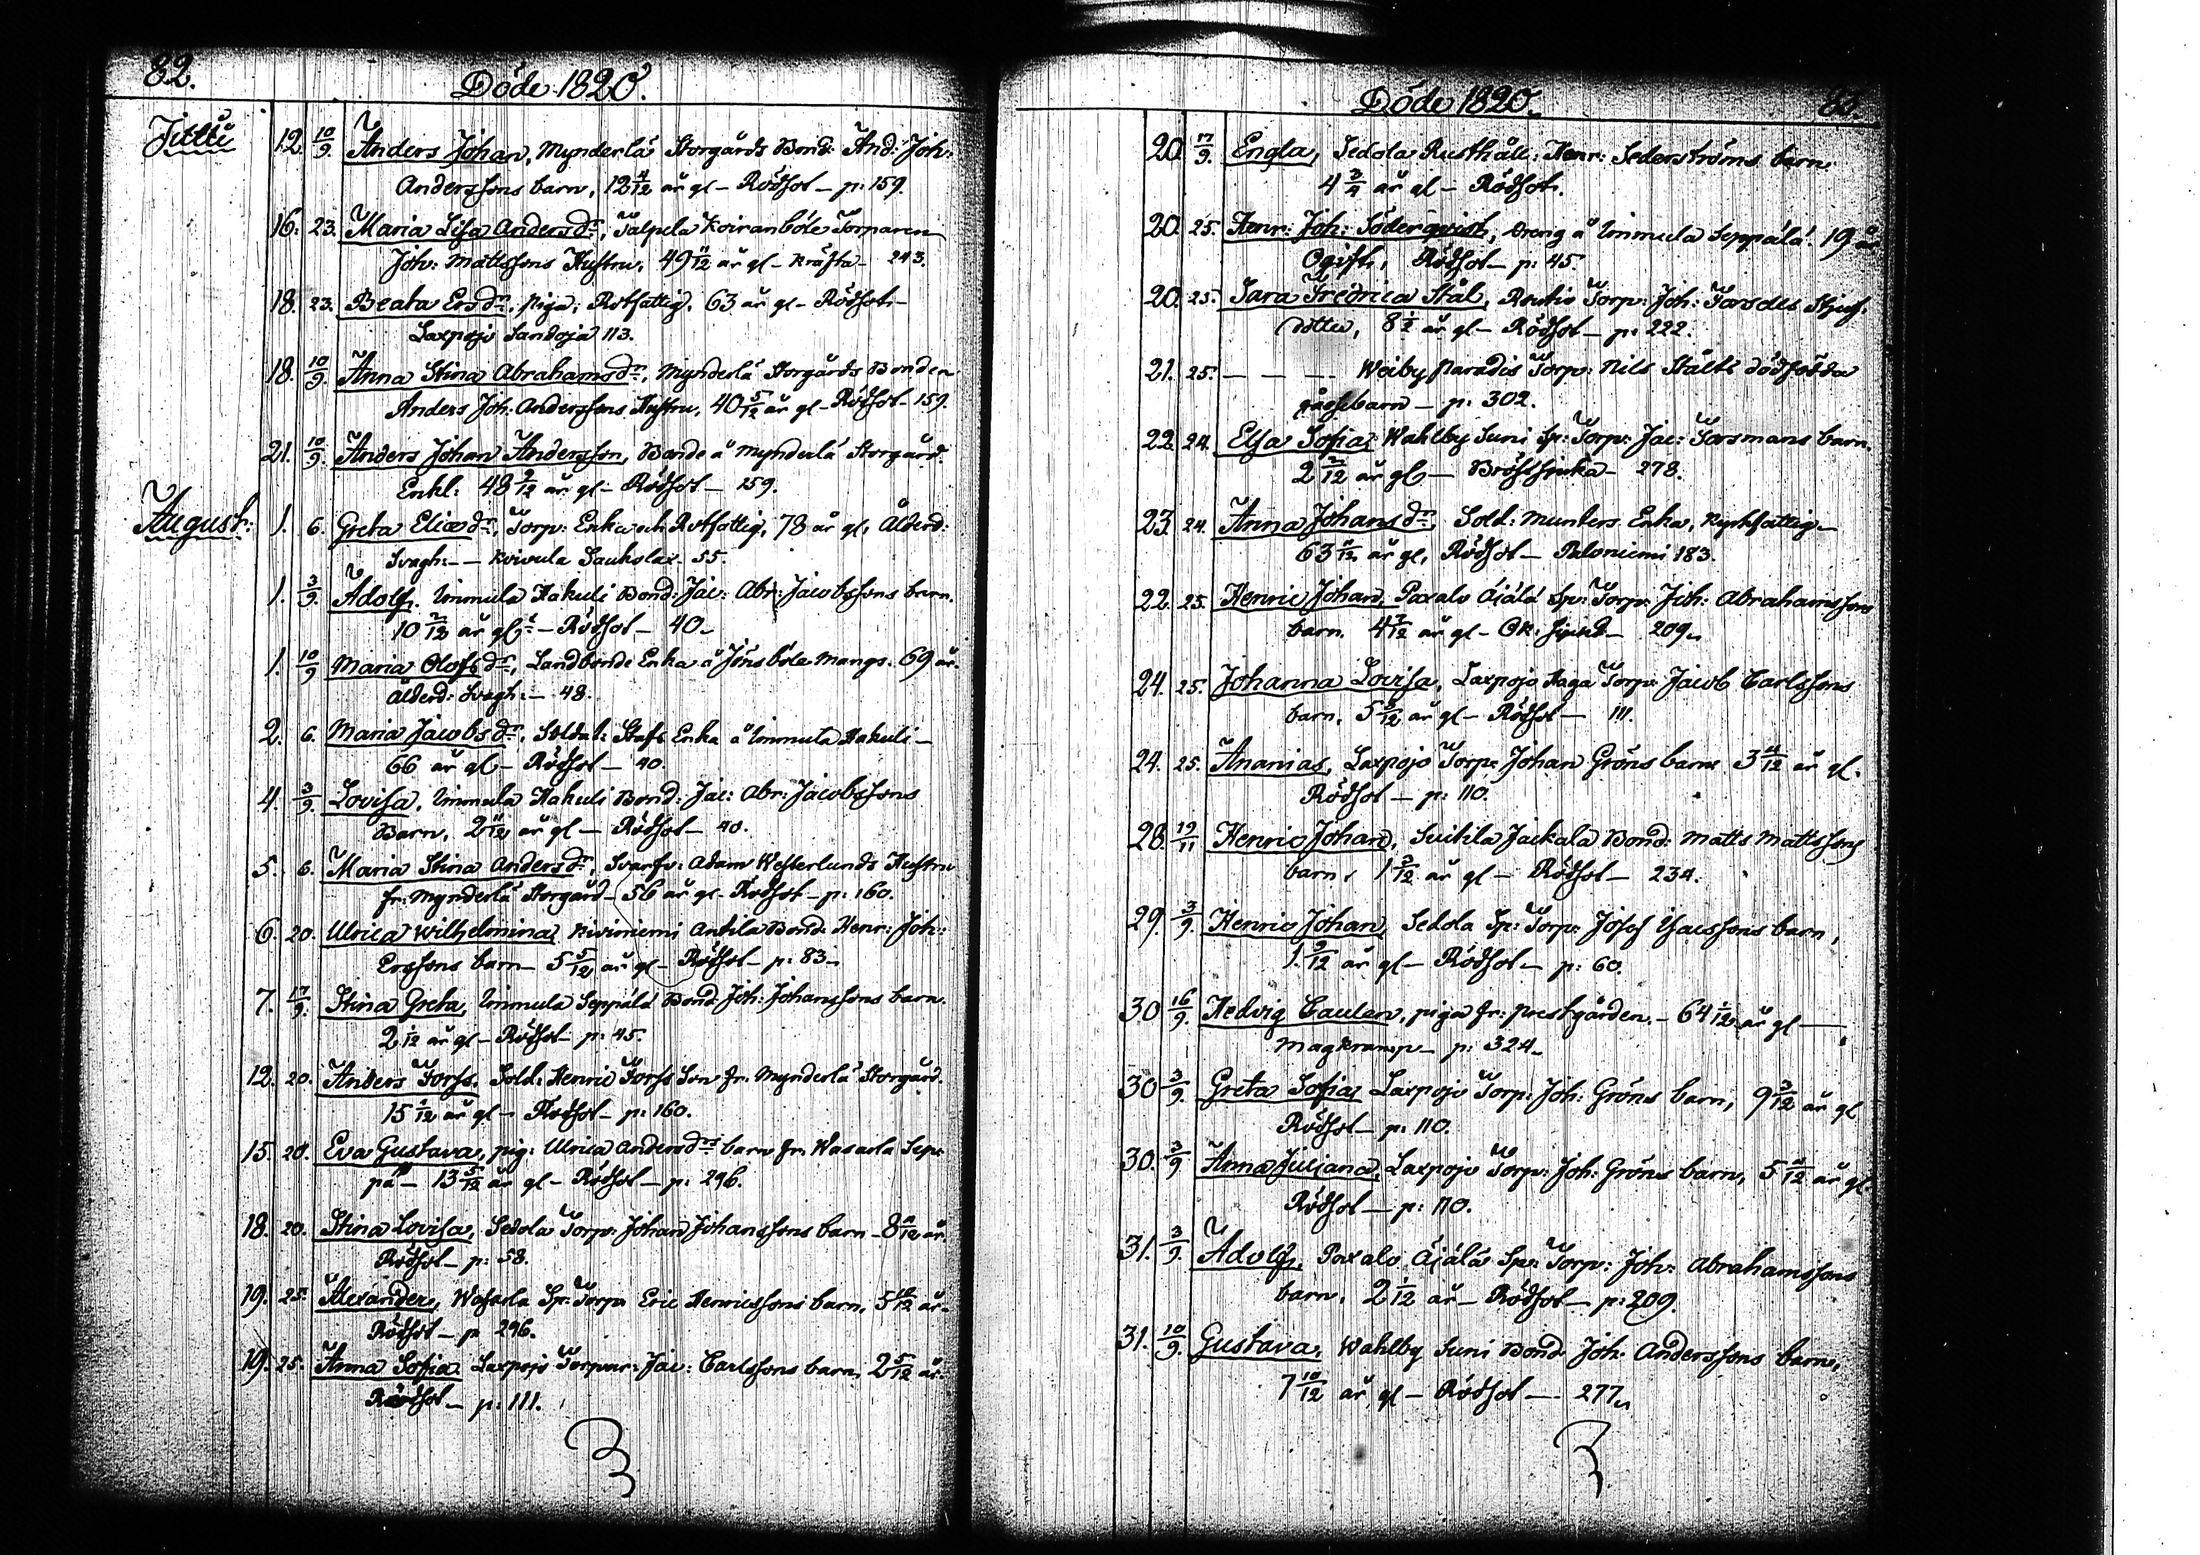 82.
Döde 1820.
Julii
12. 10/9. Anders Johan, Mynderlä Storgårds Bond: And: Joh:
Anderssons barn, 12 4/12 år gl – Rödsot – p: 159.
16. 23. Maria Lisa Andersdr, Talpela Koiranböle Torparen
Joh: Mattssons Hustru, 49 11/12 år gl – Kräfta – 243.
18. 23. Beata Ersdr, piga, Rotfattig, 63 år gl – Rödsot –
Laxpojo Sandoja 113.
18. 10/9. Anna Stina Abrahamsdr, Mynderlä Storgårds Bonden
Anders Joh: Anderssons Hustru, 40 5/12 år gl – Rödsot – 159.
21. 10/9. Anders Johan Andersson, Bonde å Mynderlä Storgård.
Enkl: 48 9/12 år gl – Rödsot – 159.
August:
1. 6. Greta Eliædr, Torp: Enka och Rotfattig, 78 år gl, Ålderd:
Svagh: – – Koivula Saukslax – 55.
1. 3/9. Adolf. Immula Hakuli Bond: Jac: Abr: Jacobssons barn.
10 2/12 år gl – Rödsot – 40 –
1. 10/9 Maria Olofsdr, Landbonde Enka å Jönsböle Mangs. 69 år.
Ålderd: Svagh: – 48.
2. 6. Maria Jacobsdr, Soldat: Stafs Enka å Immula Hakuli –
66 år gl – Rödsot – 40.
4. 3/9. Lovisa, Immula Hakuli Bond: Jac: Abr: Jacobssons
Barn, 2 11/12 år gl – Rödsot – 40.
5. 6. Maria Stina Andersdr, Svarfv: Adam Westerlunds Hustru
fr: Mynderlä Storgård – 56 år gl – Rödsot – p: 160.
6. 20. Ulrica Wilhelmina, Kiviniemi Antila Bond: Henr: Joh:
Erssons barn – 5 5/12 år gl – Rödsot – p: 83 –
7. 17/9. Stina Greta, Immula Seppälä Bond: Joh: Johanssons barn.
2 1/12 år gl – Rödsot – p: 45.
12. 20. Anders Forss, Sold: Henric Forss Son fr: Mynderlä Storgård.
15 1/12 år gl – Rödsot – p: 160.
15. 20. Eva Gustava, pig: Ulrica Andersdrs barn fr: Wasarla Sep:
pä – 13 5/12 år gl – Rödsot – p: 296.
18. 20. Stina Lovisa, Sedola Torp: Johan Johanssons barn – 8 11/12 år.
Rödsot – p: 58.
19. 25. Alexander, Wasarla Sp: Torp: Eric Henricssons barn, 5 10/12 år –
Rödsot – p 296.
19. 25. Anna Sofia. Laxpojo Torpar: Jac: Carlssons barn, 2 5/12 år.
Rödsot – p: 111.
Döde 1820.
83.
20. 17/9. Engla, Sedola Rusthåll: Henr: Sederströms barn.
4 3/4 år gl – Rödsot.
20. 25. Henr: Joh: Söderqvist, Dreng å Immula Seppälä. 19 år
Ogift, Rödsot – p: 45.
20. 25. Sara Fredrica Stål, Routio Torp: Joh: Forsdels Stjuf:
dotter, 8 1/2 år gl – Rödsot – p: 222.
21. 25. – – – Weiby Paradis Torp: Nils Stålts dödfödda
gåssebarn – p: 302.
22. 24. Elsa Sofia, Wahlby Suni Sp: Torp: Jac: Forsmans barn.
2 2/12 år gl – Bröstsjuka – 278.
23. 24. Anna Johansdr, Sold: Munters Enka, Kyrkfattig –
63 11/12 år gl, Rödsot – Paloniemi 183.
22. 25. Henric Johan, Paxalo Äijälä Sp: Torp: Joh: Abrahamssons
barn. 4 7/12 år gl – Ok: sjukd – 209.
24. 25. Johanna Lovisa, Laxpojo Haga Torp: Jacob Carlssons
barn, 5 5/12 år gl – Rödsot – 111.
24. 25. Ananias, Laxpojo Torp: Johan Gröns barn 3 4/12 år gl.
Rödsot – p: 110.
28. 19/11 Henric Johan, Suitila Jackala Bond: Matts Mattssons
barn, 1 3/12 år gl – Rödsot – 234.
29. 3/9. Henric Johan, Sedola Sp: Torp: Josef Isacssons barn,
1 9/12 år gl – Rödsot – p: 60.
30 16/9. Hedvig Caulen, piga fr: prestgården. – 64 1/12 år gl –
Magkramp – p: 324 –
30 3/9. Greta Sofia, Laxpojo Torp: Joh: Gröns barn, 9 3/12 år gl
Rödsot – p: 110.
30. 3/9 Anna Juliana, Laxpojo Torp: Joh: Gröns barn, 5 11/12 år gl.
Rödsot – p: 110.
31. 3/9 Adolf, Paxalo Äijälä Sp: Torp: Joh: Abrahamssons
barn, 2 1/12 år – Rödsot – p: 209
31. 10/9. Gustava, Wahlby Suni Bond: Joh: Anderssons barn,
7 10/12 år gl – Rödsot – 277.